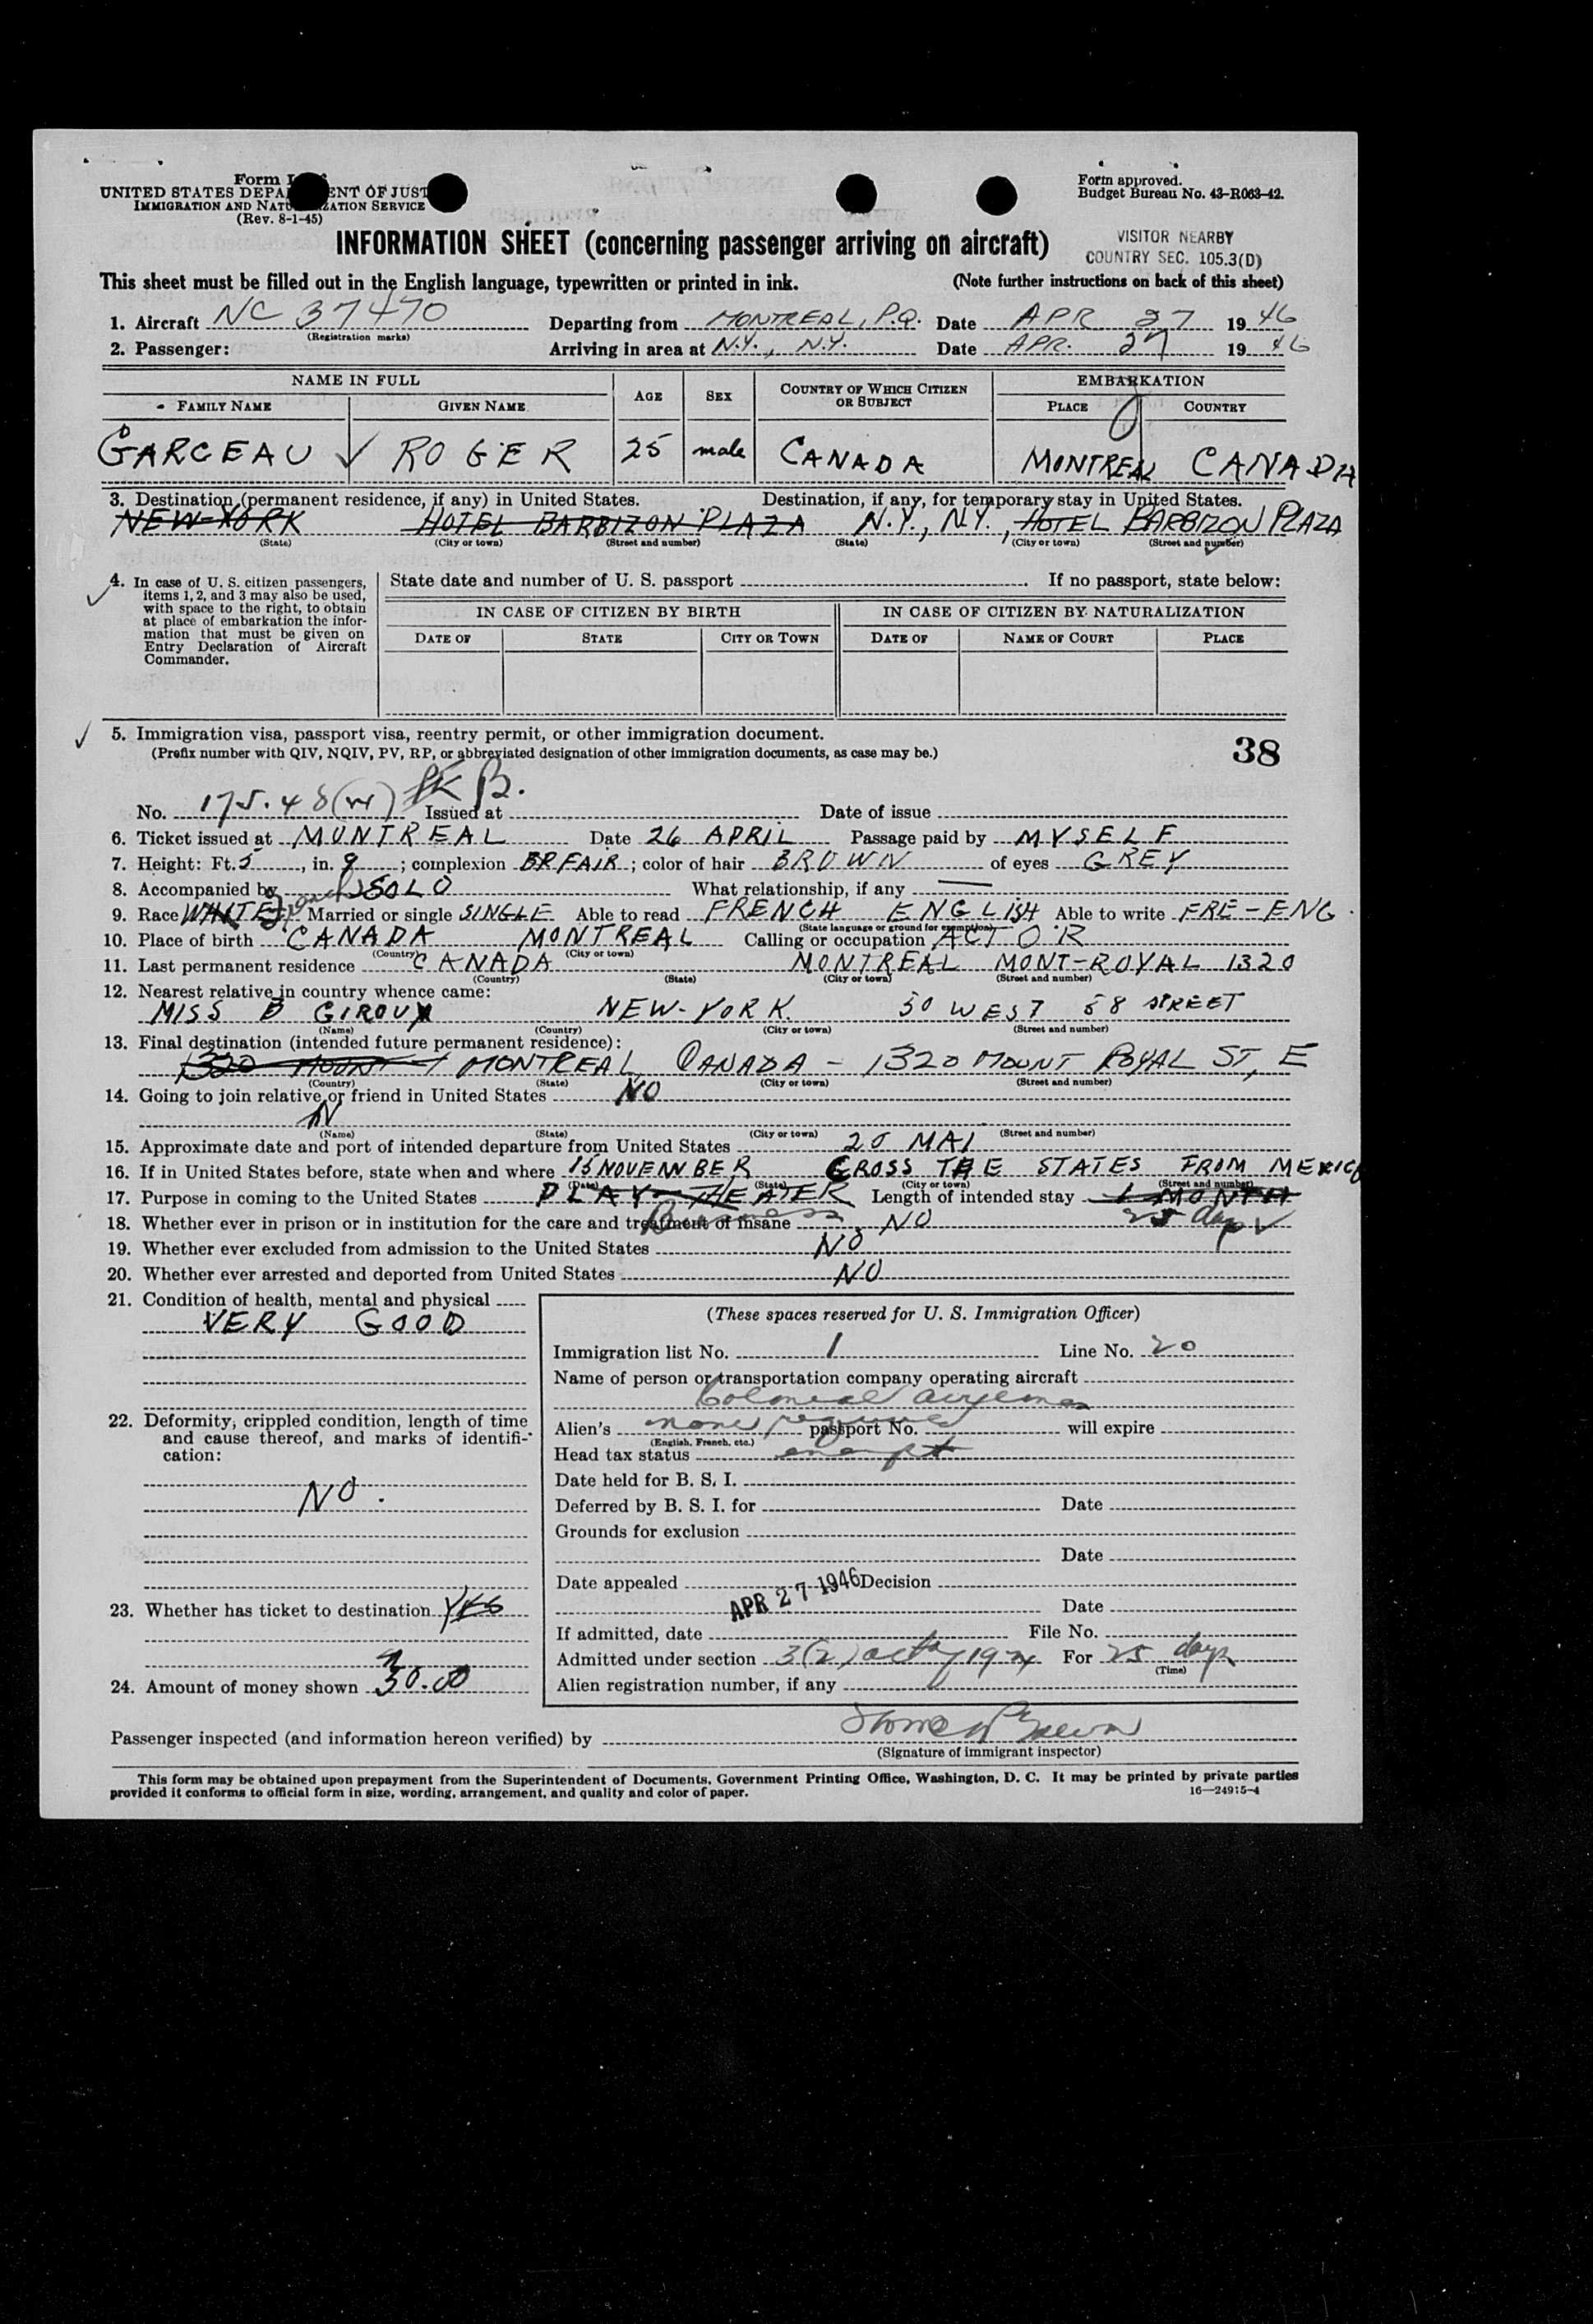 Form I
UNITED STATES DEPA ENT OF JUST
IMMIGRATION AND NATU ZATION SERVICE
(Rev. 8-1-45)
Form approved.
Budget Bureau No. 43-R063-42.
INFORMATION SHEET (concerning passenger arriving on aircraft)
VISITOR NEARBY
COUNTRY SEC. 105.3(D)
This sheet must be filled out in the English language, typewritten or printed in ink. (Note further instructions on back of this sheet)
1. Aircraft NC 37470 Departing from MONTREAL, P.Q. Date APR 27 1946
(Registration marks)
2. Passenger: Arriving in area at N.Y., N.Y. Date APR. 27 1946
NAME IN FULL AGE SEX COUNTRY OF WHICH CITIZEN OR SUBJECT EMBARKATION
FAMILY NAME GIVEN NAME PLACE COUNTRY
GARCEAU ROGER 25 male CANADA MONTREAL CANADA
3. Destination (permanent residence, if any) in United States. Destination, if any, for temporary stay in United States.
NEW-YORK HOTEL BARBIZON PLAZA N.Y., N.Y., HOTEL BARBIZON PLAZA
(State) (City or town) (Street and number) (State) (City or town) (Street and number)
4. In case of U. S. citizen passengers, items 1, 2, and 3 may also be used, with space to the right, to obtain at place of embarkation the information that must be given on Entry Declaration of Aircraft Commander.
State date and number of U. S. passport If no passport, state below:
IN CASE OF CITIZEN BY BIRTH IN CASE OF CITIZEN BY NATURALIZATION
DATE OF STATE CITY OR TOWN DATE OF NAME OF COURT PLACE
5. Immigration visa, passport visa, reentry permit, or other immigration document.
(Prefix number with QIV, NQIV, PV, RP, or abbreviated designation of other immigration documents, as case may be.)
38
No. 175.48 Issued at Date of issue
6. Ticket issued at MONTREAL Date 26 APRIL Passage paid by MYSELF
7. Height: Ft. 5, in. 9; complexion BR FAIR; color of hair BROWN of eyes GREY
8. Accompanied by SOLO What relationship, if any —
9. Race WHITE French Married or single SINGLE Able to read FRENCH ENGLISH Able to write FRE-ENG.
(State language or ground for exemption)
10. Place of birth CANADA MONTREAL Calling or occupation ACTOR
(Country) (City or town)
11. Last permanent residence CANADA MONTREAL MONT-ROYAL 1320
(Country) (State) (City or town) (Street and number)
12. Nearest relative in country whence came:
MISS B GIROUX NEW-YORK. 50 WEST 58 STREET
(Name) (Country) (City or town) (Street and number)
13. Final destination (intended future permanent residence):
1320 MOUNT MONTREAL, CANADA - 1320 MOUNT ROYAL ST, E
(Country) (State) (City or town) (Street and number)
14. Going to join relative or friend in United States NO
(Name) (State) (City or town) (Street and number)
15. Approximate date and port of intended departure from United States 20 MAI
16. If in United States before, state when and where 15 NOVEMBER CROSS THE STATES FROM MEXICO
(Date) (State) (City or town) (Street and number)
17. Purpose in coming to the United States PLAY THEATER Length of intended stay 1 MONTH
Business 25 days
18. Whether ever in prison or in institution for the care and treatment of insane NO
19. Whether ever excluded from admission to the United States NO
20. Whether ever arrested and deported from United States NO
21. Condition of health, mental and physical
VERY GOOD
22. Deformity, crippled condition, length of time and cause thereof, and marks of identification:
NO.
23. Whether has ticket to destination YES
24. Amount of money shown 30.00
(These spaces reserved for U. S. Immigration Officer)
Immigration list No. 1 Line No. 20
Name of person or transportation company operating aircraft
Colonial Airlines
Alien's none required passport No. will expire
(English, French, etc.)
Head tax status exempt
Date held for B. S. I.
Deferred by B. S. I. for Date
Grounds for exclusion
Date
Date appealed Decision
APR 27 1946
Date
If admitted, date File No.
Admitted under section 3(2) act of 1924 For 25 days
(Time)
Alien registration number, if any
Passenger inspected (and information hereon verified) by
(Signature of immigrant inspector)
This form may be obtained upon prepayment from the Superintendent of Documents, Government Printing Office, Washington, D. C. It may be printed by private parties
provided it conforms to official form in size, wording, arrangement, and quality and color of paper. 16—24915-4